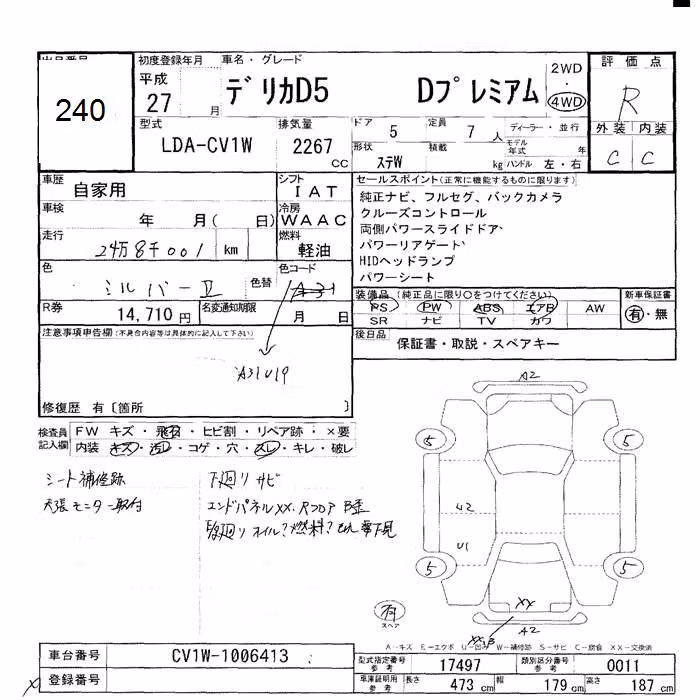 出品番号
240
初度登録年月
平成
27
月
車名・グレード
デリカD5 Dプレミアム
2WD
4WD
評価点
R
外装 内装
C C
型式
LDA-CV1W
排気量
2267
CC
ドア
5
定員
7
人
ディーラー・並行
形状
ステW
積載
kg
モデル年式
年
ハンドル 左・右
車歴
自家用
シフト
IAT
車検
年 月( 日)
冷房
WAAC
走行
24万8千001
km
燃料
軽油
色
シルバーⅡ
色替
色コード
A31
R券
14,710 円
名変通知期限
月 日
セールスポイント(正常に機能するものに限ります)
純正ナビ、フルセグ、バックカメラ
クルーズコントロール
両側パワースライドドア、
パワーリアゲート、
HIDヘッドランプ
パワーシート
装備品(純正品に限り○をつけてください)
PS PW ABS エアB AW
SR ナビ TV カワ
新車保証書
有・無
後日品
保証書・取説・スペアキー
注意事項申告欄(不具合内容等は具体的に記入して下さい)
A31U19
修復歴 有〔箇所 〕
検査員記入欄
FW キズ・飛石・ヒビ割・リペア跡・×要
内装 キズ・汚レ・コゲ・穴・スレ・キレ・破レ
シート補修跡
天張モニター取付
下廻りサビ
エンドパネルXX.Rフロア
A2
5
5
U2
U1
5
5
XX
A2
有
スペア
A-キズ E-エクボ U-凹み W-補修跡 S-サビ C-腐食 XX-交換済
車台番号
CV1W-1006413
登録番号
型式指定番号
参考
17497
類別区分番号
参考
0011
車庫証明用
参考
長さ
473 cm
幅
179 cm
高さ
187 cm